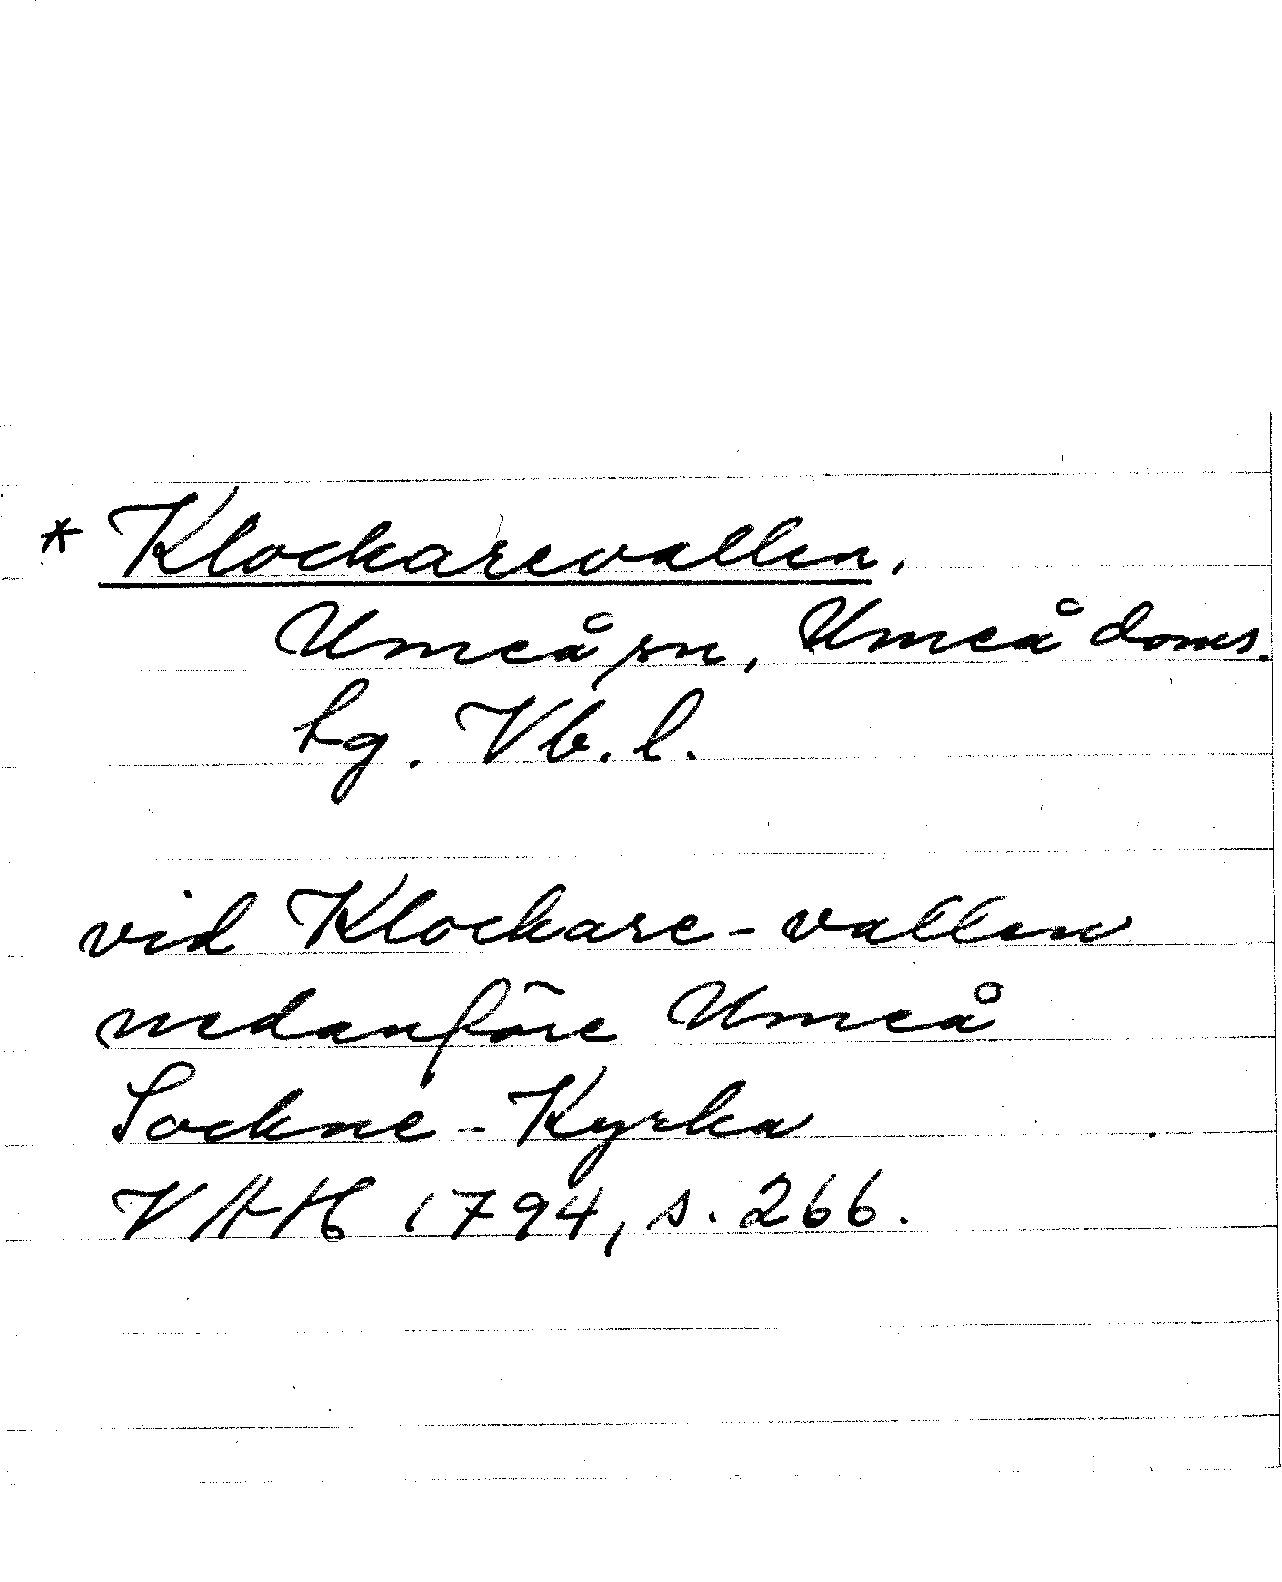 * Klockarevallen.
Umeå sn, Umeå doms.
hg. Vb. l.
vid Klockare-vallen
nedanföre Umeå
Sockne-Kyrka
VAH 1794, s. 266.